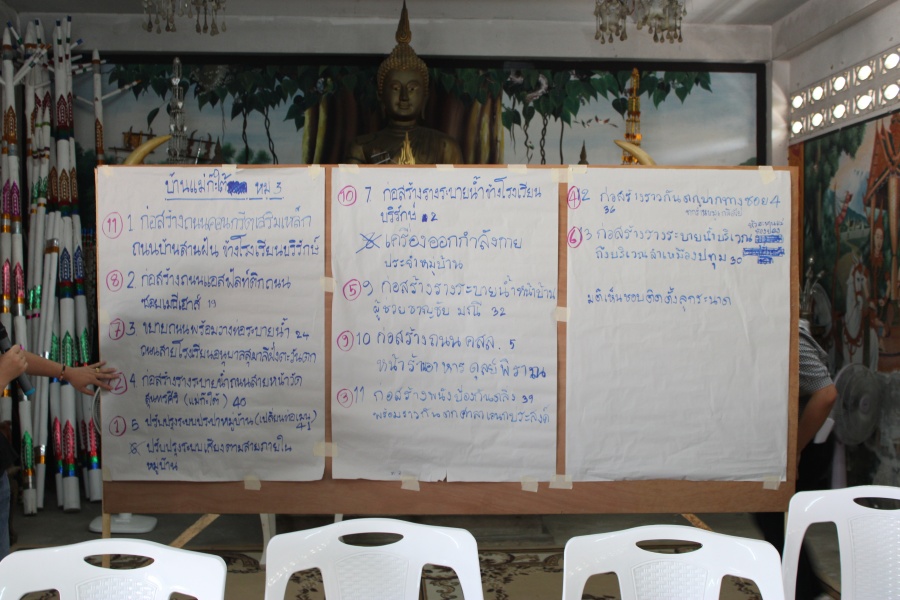 บ้านแม่ก๊ะใต้ หมู่ 3
11 1 ก่อสร้างถนนคอนกรีตเสริมเหล็ก
ถนนบ้านสานฝัน ข้างโรงเรียนปริรักษ์
8 2 ก่อสร้างถนนแอสฟัลท์ติกถนน
ซอยเมธี 11
7 3 ขยายถนนพร้อมวางท่อระบายน้ำ 24
ถนนสายโรงเรียนอนุบาลสุมาลีฝั่งตะวันตก
2 4 ก่อสร้างรางระบายน้ำถนนสายหน้าวัด
สุนทรศีรี (แม่ก๊ะใต้) 40
1 5 ปรับปรุงระบบประปาหมู่บ้าน (เปลี่ยนท่อเมน) 41
ปรับปรุงระบบเสียงตามสายภายใน
หมู่บ้าน
10 7 ก่อสร้างรางระบายน้ำข้างโรงเรียน
ปริรักษ์ 2
เครื่องออกกำลังกาย
ประจำหมู่บ้าน
5 9 ก่อสร้างรางระบายน้ำหน้าบ้าน
ผู้ช่วยชาญชัย มณี 32
9 10 ก่อสร้างถนน คสล. 5
หน้าร้านอาหาร
3 11 ก่อสร้างพนังป้องกันตลิ่ง 39
พร้อมราวกันตกศาลาเอนกประสงค์
4 12 ก่อสร้างราวกันตก ซอย 4
36
6 13 ก่อสร้างรางระบายน้ำบริเวณ
ถึงบริเวณลำเหมืองปทุม 30
มติเห็นชอบติดตั้งลูกระนาด